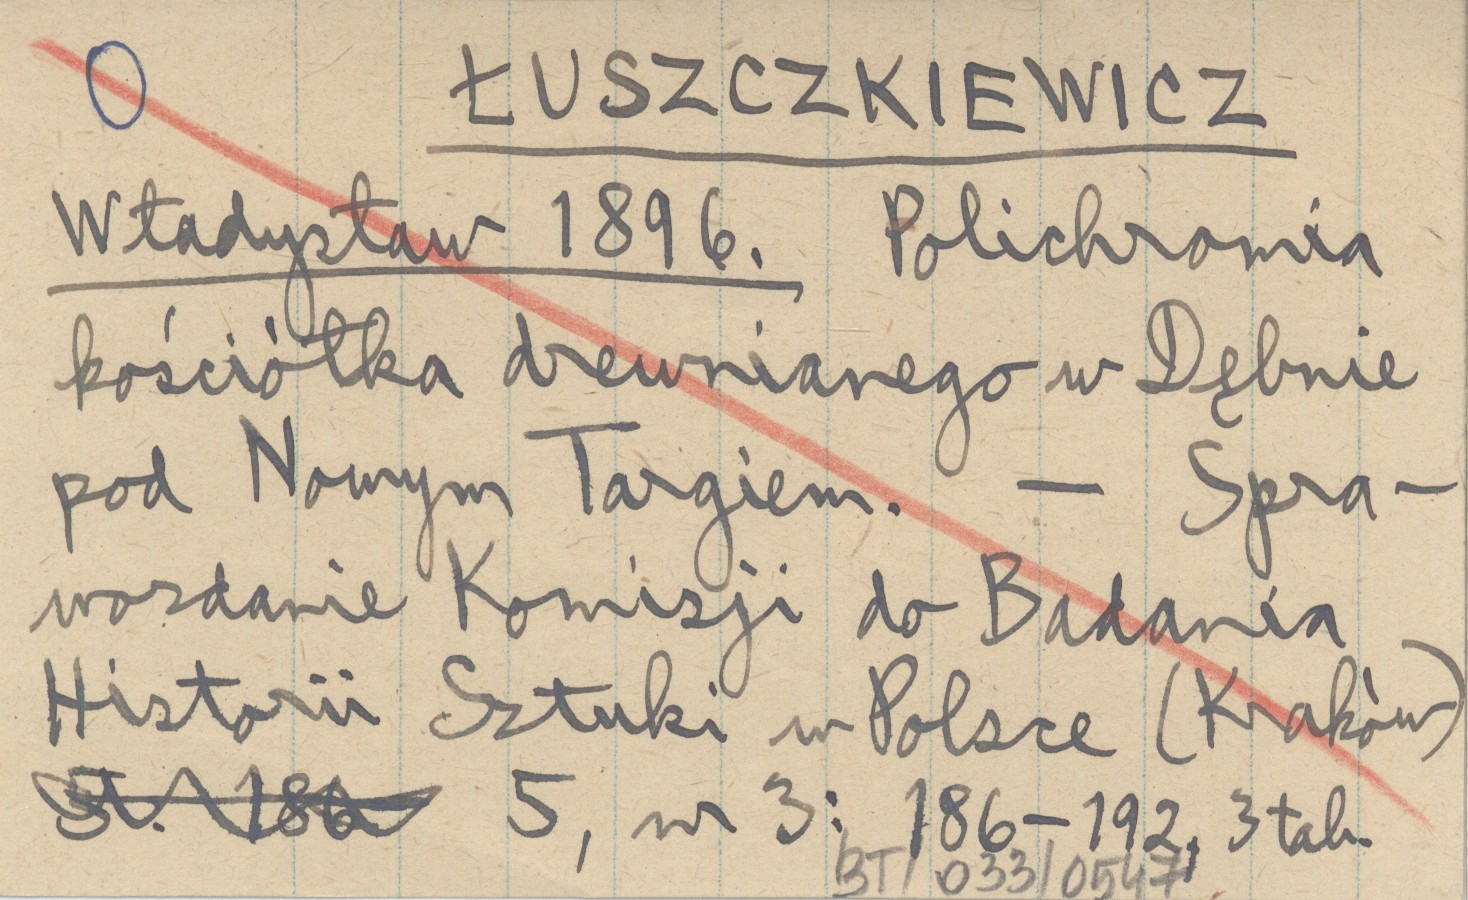 ŁUSZCZKIEWICZ
Władysław 1896. Polichromia
kościółka drewnianego w Dębnie
pod Nowym Targiem. — Spra-
wozdanie Komisji do Badania
Historii Sztuki w Polsce (Kraków)
5, nr 3: 186-192, 3 tab.
BT/033/0547